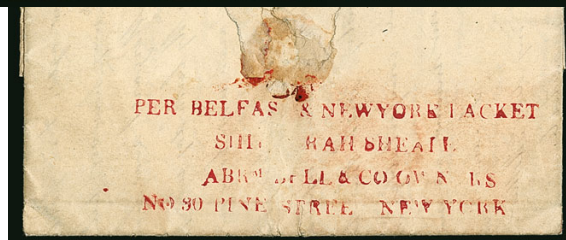 PER BELFAST & NEWYORK PACKET
SHIP SARAH SHEAFE
ABRM BELL & CO OWNERS
No 30 PINE STREET NEW YORK